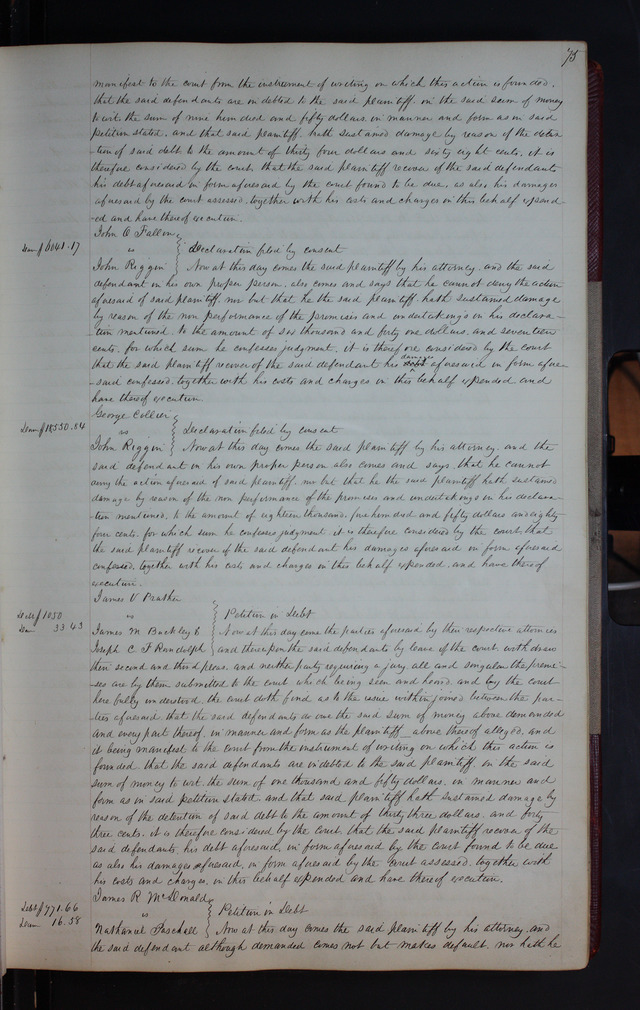 75
manifest to the court from the instrument of writing on which this action is founded,
that the said defendants are indebted to the said plaintiff in the said sum of money
to wit the sum of nine hundred and fifty dollars, in manner and form as in said
petition stated, and that said plaintiff hath sustained damage by reason of the deten-
-tion of said debt to the amount of thirty four dollars and sixty eight cents, it is
therefore considered by the court, that the said plaintiff recover of the said defendants
his debt aforesaid in form aforesaid by the court found to be due, as also his damages
aforesaid by the court assessed, together with his costs and charges in this behalf expend-
-ed and have thereof execution.
John O Fallon
Dam $6041.17 vs Declaration filed by consent
John Riggin Now at this day comes the said plaintiff by his attorney, and the said
defendant in his own proper person, also comes and says that he cannot deny the action
aforesaid of said plaintiff, nor but that he the said plaintiff hath sustained damage
by reason of the non performance of the promises and undertakings in his declara-
-tion mentioned, to the amount of six thousand and forty one dollars, and seventeen
cents, for which sum he confesses judgment, it is therefore considered by the court
that the said plaintiff recover of the said defendant his damages aforesaid in form afore-
-said confessed, together with his costs and charges in this behalf expended and
have thereof execution.
George Collier
Dam $18550.84 vs Declaration filed by consent
John Riggin Now at this day comes the said plaintiff by his attorney, and the
said defendant in his own proper person also comes and says, that he cannot
deny the action aforesaid of said plaintiff, nor but that he the said plaintiff hath sustained
damage by reason of the non performance of the promises and undertakings in his declara-
-tion mentioned, to the amount of eighteen thousand, five hundred and fifty dollars and eighty
four cents, for which sum he confesses judgment it is therefore considered by the court, that
the said plaintiff recover of the said defendant his damages aforesaid in form aforesaid
confessed, together with his costs and charges in this behalf expended, and have thereof
execution.
James V Prather
Debt $1050 vs Petition in Debt
Dam 33.43 James M Buckley & Now at this day come the parties aforesaid by their respective attornies
Joseph C. F Randolph and thereupon the said defendants by leave of the court, withdraw
their second and third pleas, and neither party requiring a jury, all and singular the premi-
-ses are by them submitted to the court which being seen and heard, and by the court
here fully understood, the court doth find as to the issue within joined between the par-
-ties aforesaid, that the said defendants do owe the said sum of money above demanded
and every part thereof, in manner and form as the plaintiff above thereof alleged, and
it being manifest to the court from the instrument of writing on which this action is
founded, that the said defendants are indebted to the said plaintiff in the said
sum of money to wit, the sum of one thousand and fifty dollars, in manner and
form as in said petition stated, and that said plaintiff hath sustained damage by
reason of the detention of said debt to the amount of thirty three dollars, and forty
three cents, it is therefore considered by the court, that the said plaintiff recover of the
said defendants, his debt aforesaid, in form aforesaid by the court found to be due
as also his damages aforesaid, in form aforesaid by the court assessed, together with
his costs and charges, in this behalf expended and have thereof execution.
James R McDonald
Debt $771.66 vs Petition in Debt
Dam 16.58 Nathaniel Paschall Now at this day comes the said plaintiff by his attorney, and
the said defendant although demanded comes not but makes default, nor hath he